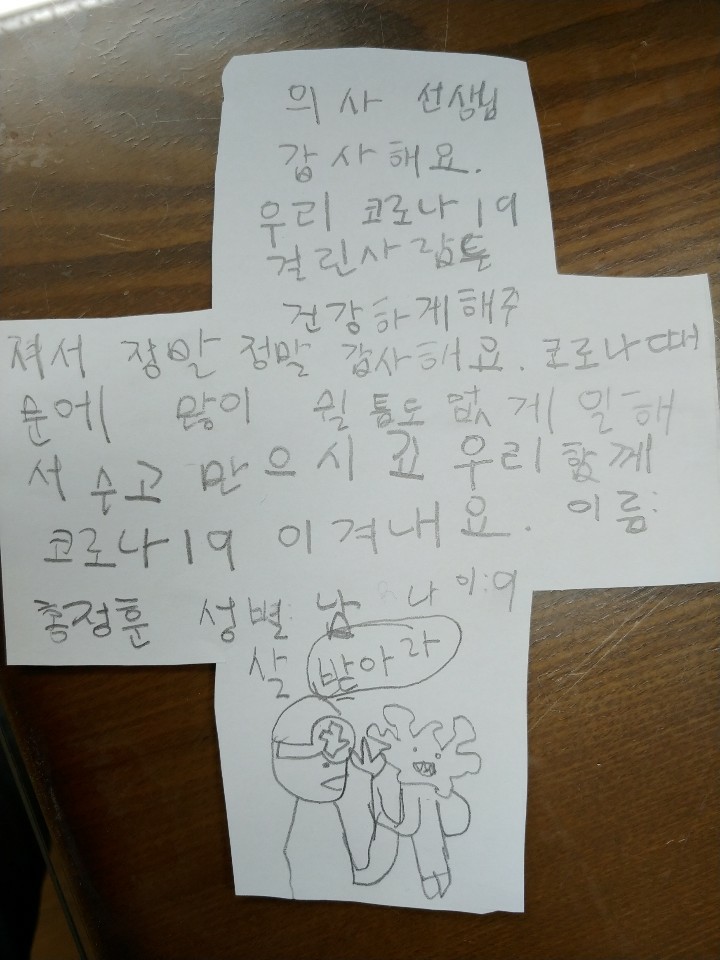 의사 선생님
감사해요.
우리 코로나19
걸린사람들
건강하게해주
져서 장말 정말 감사해요. 코로나때
문에 많이 쉴 틈도 없게 일해
서 수고 만으시고 우리 함께
코로나19 이겨내요. 이름:
홍정훈 성별: 남 나이:9
살 받아라